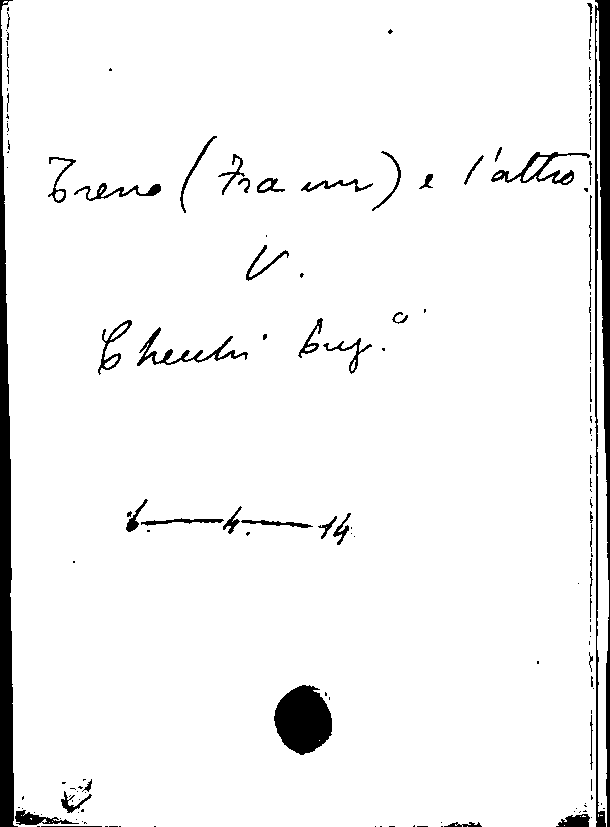 Treno (Fra un) e l'altro.
V.
Checchi Eug.º
6.—4.—14